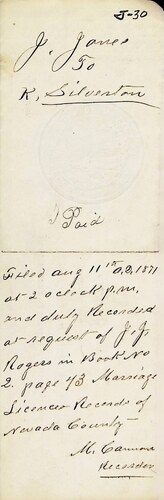 J-30
J. Jones
To
K. Silverton
Paid
Filed Aug 11th A.D. 1871
at 2 oclock p.m.
and duly Recorded
at request of J. J.
Rogers in Book No
2. page 43 Marriage
Licence Records of
Nevada County
M. Cannon
Recorder